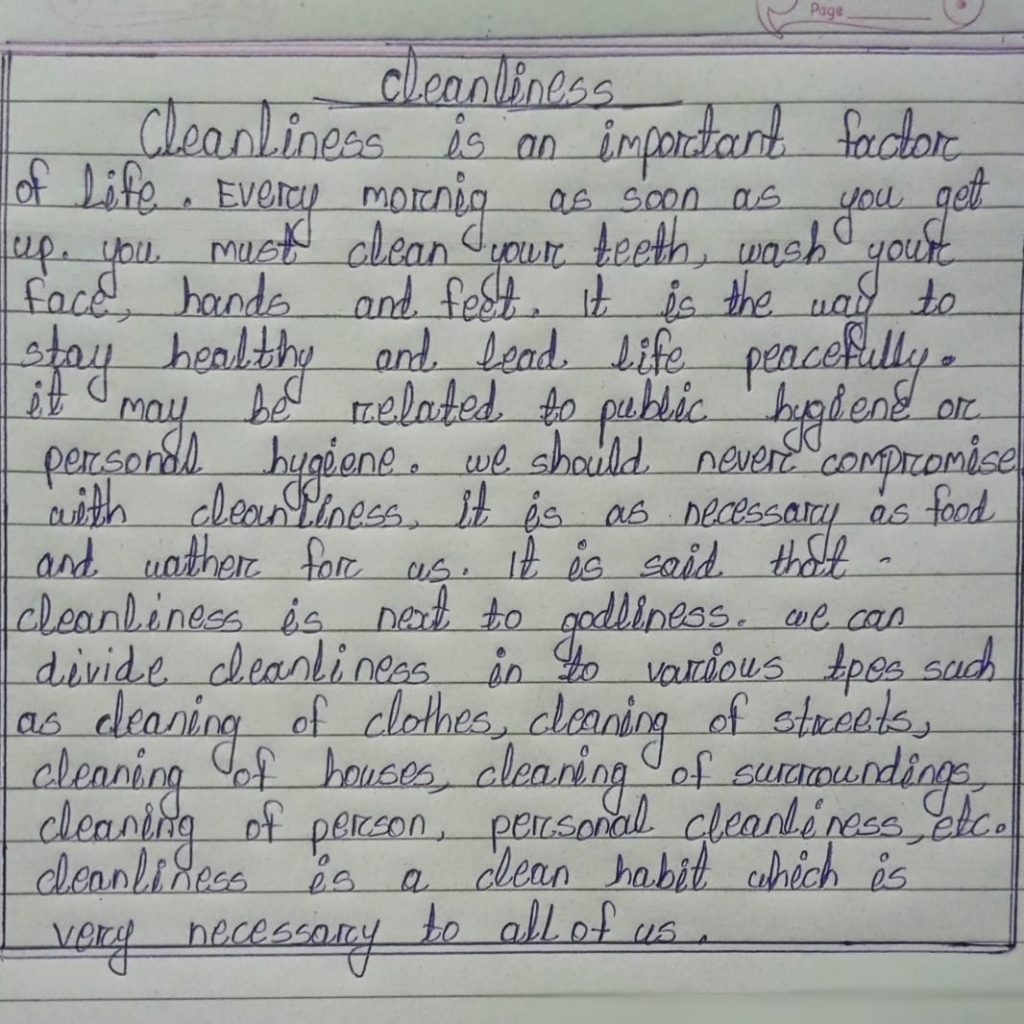 Page
cleanliness
Cleanliness is an important factor
of life. Every mornig as soon as you get
up. you must clean your teeth, wash your
face, hands and feet. It is the way to
stay healthy and lead life peacefully.
it may be related to public hygiene or
personal hygiene. we should never compromise
with cleanliness, it is as necessary as food
and wather for us. It is said that -
cleanliness is next to godliness. we can
divide cleanliness in to various tpes such
as cleaning of clothes, cleaning of streets,
cleaning of houses, cleaning of surroundings,
cleaning of person, personal cleanliness, etc.
cleanliness is a clean habit which is
very necessary to all of us.